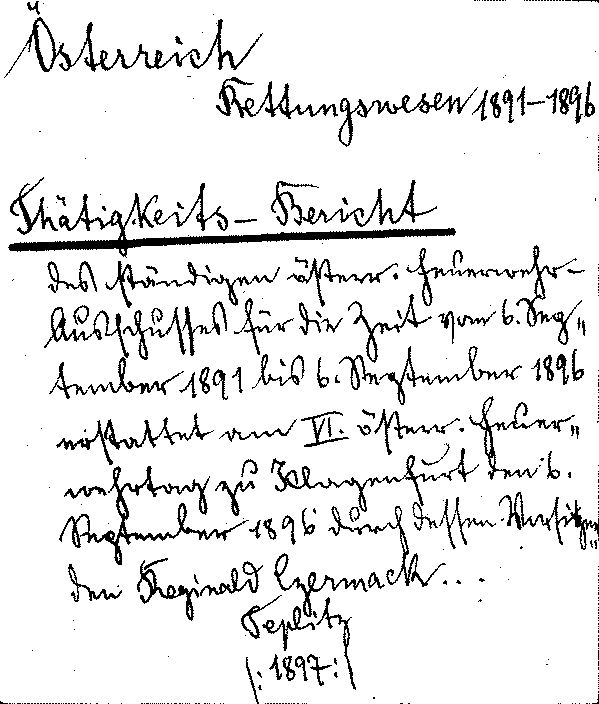 Österreich
Rettungswesen 1891-1896
Thätigkeits-Bericht
des ständigen österr. Feuerwehr-
Ausschusses für die Zeit vom 6. Sep„
tember 1891 bis 6. September 1896
erstattet am VI. österr. Feuer„
wehrtag zu Klagenfurt den 6.
September 1896 durch dessen Vorsitzen„
den Reginald Czermack...
Teplitz
/: 1897 :/